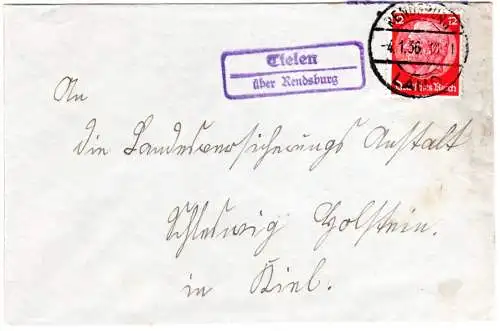 Tielen
über Rendsburg
RENDSBURG
-4.1.36.
LAND
12
Deutsches Reich
An
die Landesversicherungs Anstalt
Schleswig Holstein.
in Kiel.